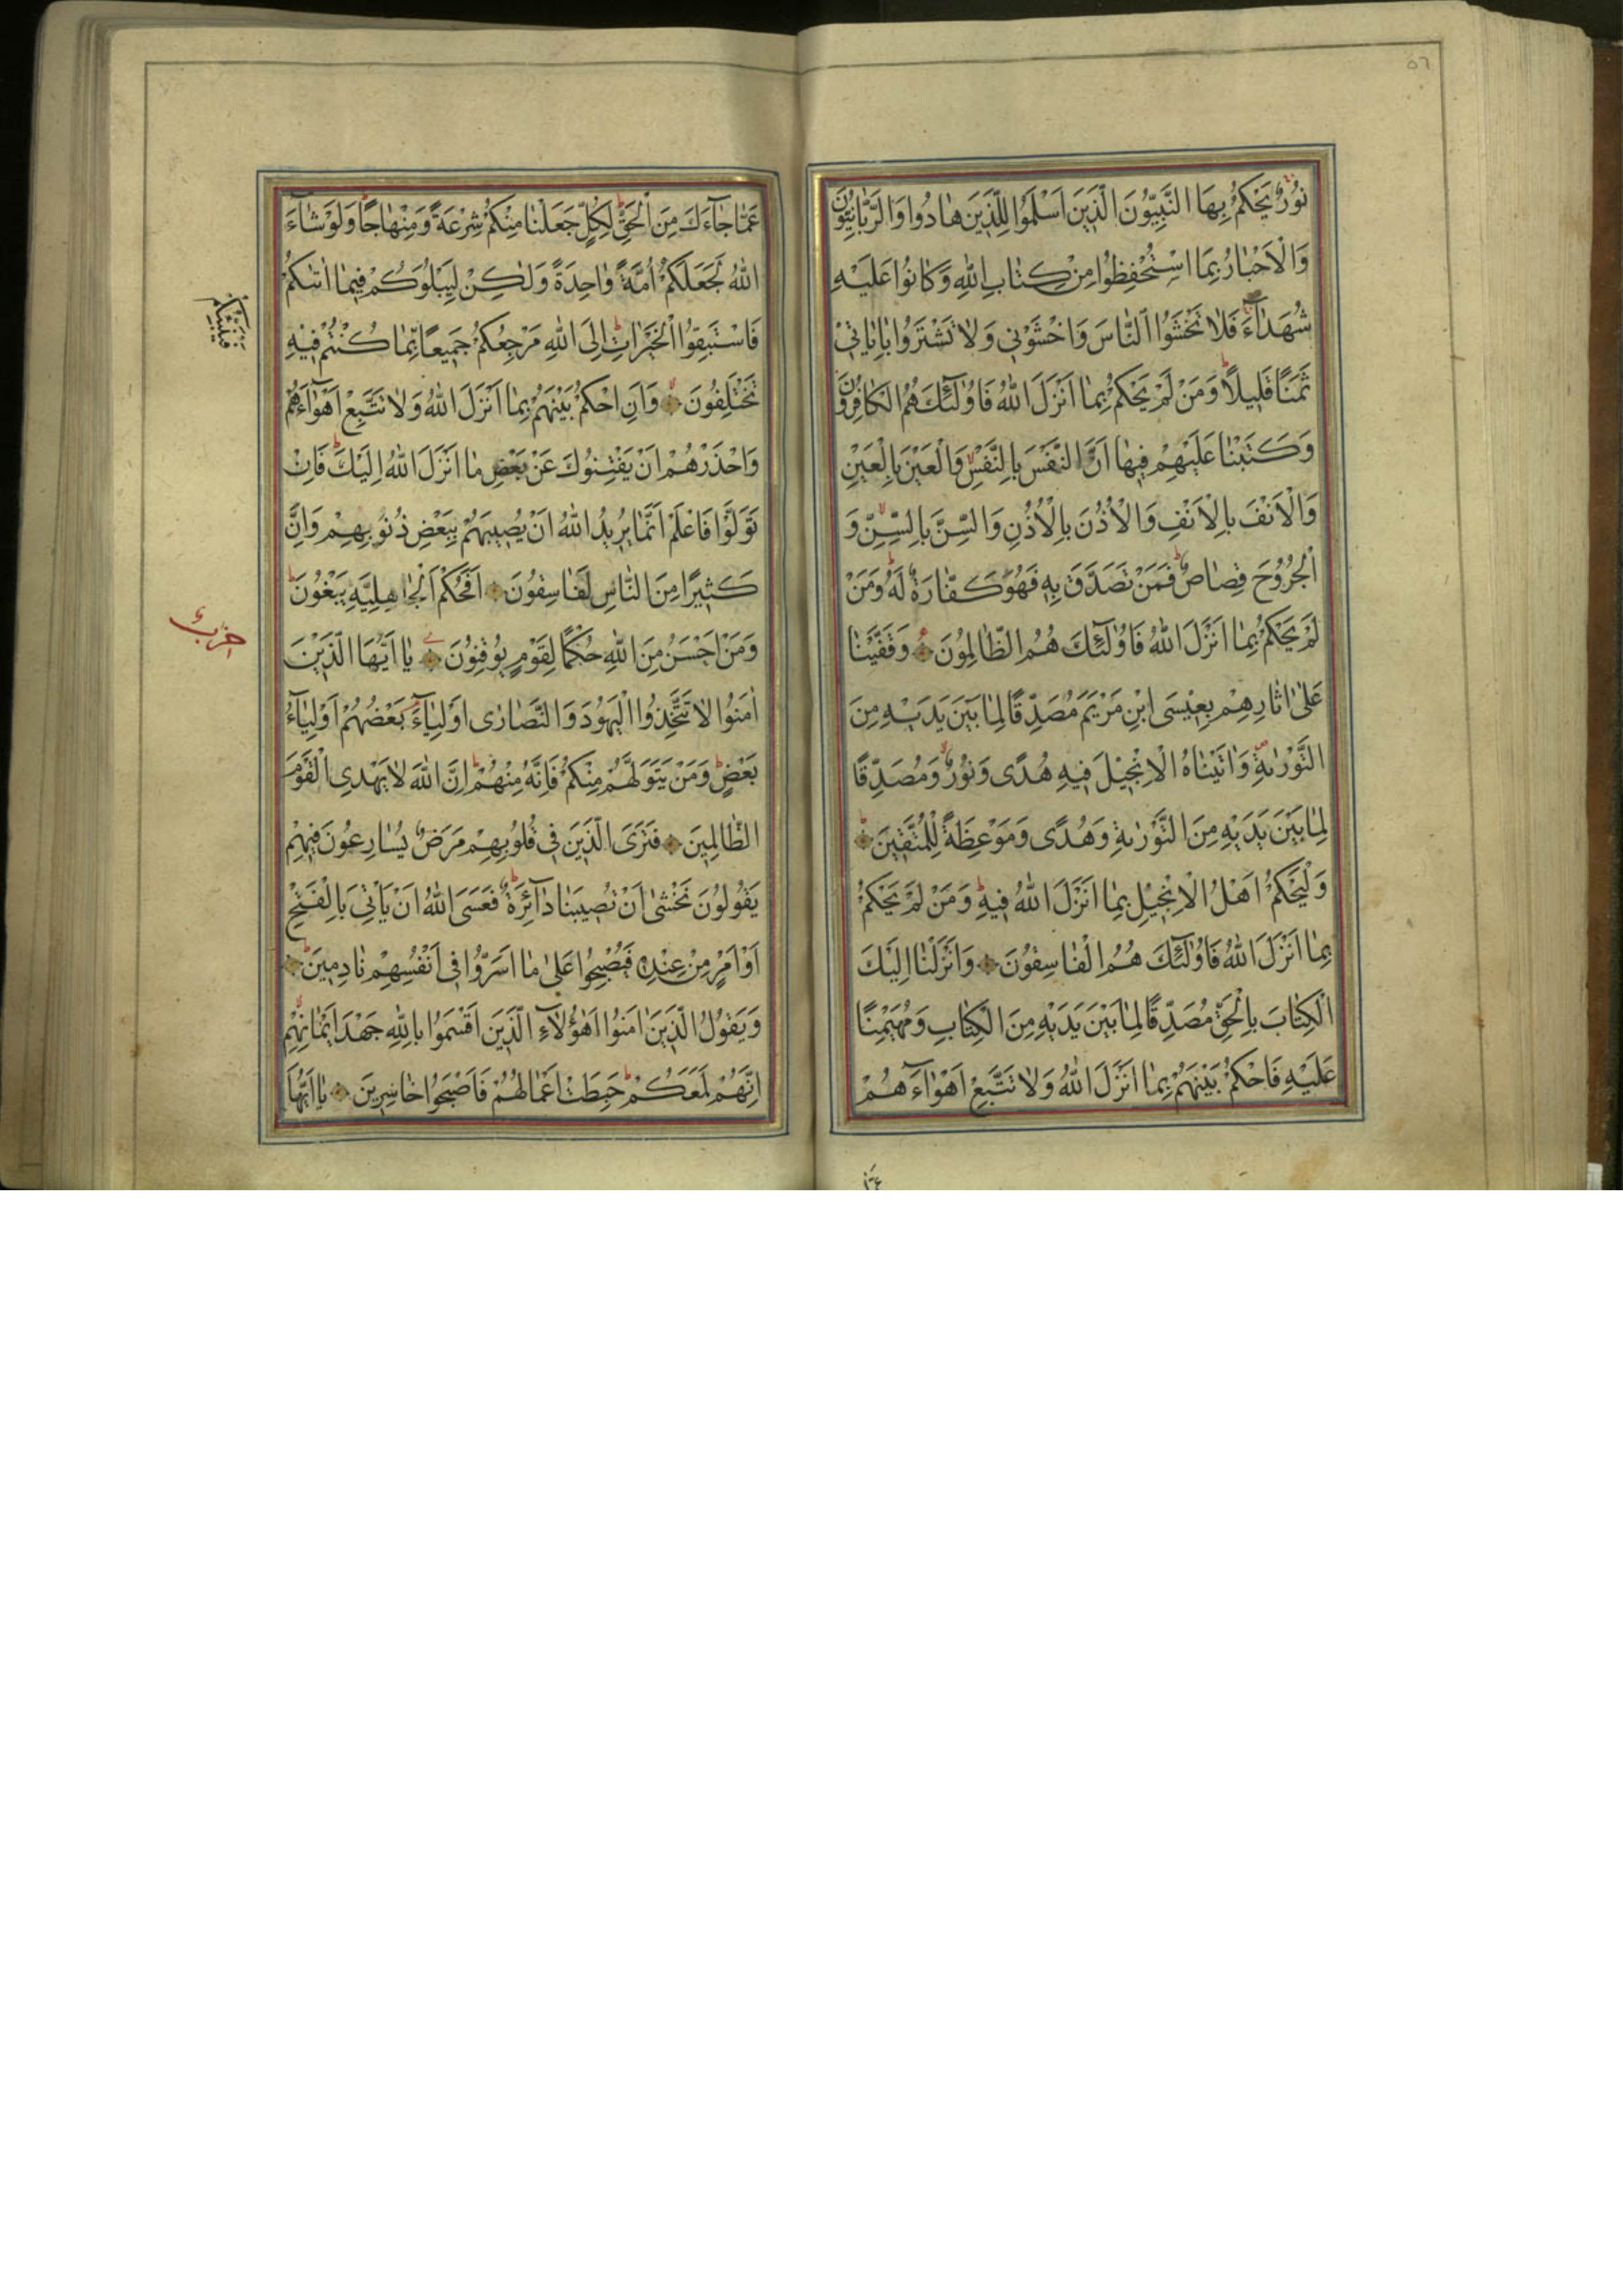 ٥٦
نُورٌ يَحْكُمُ بِهَا النَّبِيُّونَ الَّذِينَ اَسْلَمُوا لِلَّذِينَ هَادُوا وَالرَّبَّانِيُّونَ
وَالْاَحْبَارُ بِمَا اسْتُحْفِظُوا مِنْ كِتَابِ اللّٰهِ وَكَانُوا عَلَيْهِ
شُهَدَاۤءَ فَلَا تَخْشَوُا النَّاسَ وَاخْشَوْنِي وَلَا تَشْتَرُوا بِاٰيَاتِي
ثَمَنًا قَلِيلًا وَمَنْ لَمْ يَحْكُمْ بِمَا اَنْزَلَ اللّٰهُ فَاُولٰۤئِكَ هُمُ الْكَافِرُونَ
وَكَتَبْنَا عَلَيْهِمْ فِيهَا اَنَّ النَّفْسَ بِالنَّفْسِ وَالْعَيْنَ بِالْعَيْنِ
وَالْاَنْفَ بِالْاَنْفِ وَالْاُذُنَ بِالْاُذُنِ وَالسِّنَّ بِالسِّنِّ وَ
الْجُرُوحَ قِصَاصٌ فَمَنْ تَصَدَّقَ بِهِ فَهُوَ كَفَّارَةٌ لَهُ وَمَنْ
لَمْ يَحْكُمْ بِمَا اَنْزَلَ اللّٰهُ فَاُولٰۤئِكَ هُمُ الظَّالِمُونَ وَقَفَّيْنَا
عَلٰى اٰثَارِهِمْ بِعِيسَى ابْنِ مَرْيَمَ مُصَدِّقًا لِمَا بَيْنَ يَدَيْهِ مِنَ
التَّوْرٰيةِ وَاٰتَيْنَاهُ الْاِنْجِيلَ فِيهِ هُدًى وَنُورٌ وَمُصَدِّقًا
لِمَا بَيْنَ يَدَيْهِ مِنَ التَّوْرٰيةِ وَهُدًى وَمَوْعِظَةً لِلْمُتَّقِينَ
وَلْيَحْكُمْ اَهْلُ الْاِنْجِيلِ بِمَا اَنْزَلَ اللّٰهُ فِيهِ وَمَنْ لَمْ يَحْكُمْ
بِمَا اَنْزَلَ اللّٰهُ فَاُولٰۤئِكَ هُمُ الْفَاسِقُونَ وَاَنْزَلْنَا اِلَيْكَ
الْكِتَابَ بِالْحَقِّ مُصَدِّقًا لِمَا بَيْنَ يَدَيْهِ مِنَ الْكِتَابِ وَمُهَيْمِنًا
عَلَيْهِ فَاحْكُمْ بَيْنَهُمْ بِمَا اَنْزَلَ اللّٰهُ وَلَا تَتَّبِعْ اَهْوَاۤءَهُمْ
عَمَّا جَاۤءَكَ مِنَ الْحَقِّ لِكُلٍّ جَعَلْنَا مِنْكُمْ شِرْعَةً وَمِنْهَاجًا وَلَوْ شَاۤءَ
اللّٰهُ لَجَعَلَكُمْ اُمَّةً وَاحِدَةً وَلٰكِنْ لِيَبْلُوَكُمْ فِيمَا اٰتٰىكُمْ
فَاسْتَبِقُوا الْخَيْرَاتِ اِلَى اللّٰهِ مَرْجِعُكُمْ جَمِيعًا بِمَا كُنْتُمْ فِيهِ
تَخْتَلِفُونَ وَاَنِ احْكُمْ بَيْنَهُمْ بِمَا اَنْزَلَ اللّٰهُ وَلَا تَتَّبِعْ اَهْوَاۤءَهُمْ
وَاحْذَرْهُمْ اَنْ يَفْتِنُوكَ عَنْ بَعْضِ مَا اَنْزَلَ اللّٰهُ اِلَيْكَ فَاِنْ
تَوَلَّوْا فَاعْلَمْ اَنَّمَا يُرِيدُ اللّٰهُ اَنْ يُصِيبَهُمْ بِبَعْضِ ذُنُوبِهِمْ وَاِنَّ
كَثِيرًا مِنَ النَّاسِ لَفَاسِقُونَ اَفَحُكْمَ الْجَاهِلِيَّةِ يَبْغُونَ
وَمَنْ اَحْسَنُ مِنَ اللّٰهِ حُكْمًا لِقَوْمٍ يُوقِنُونَ يَا اَيُّهَا الَّذِينَ
اٰمَنُوا لَا تَتَّخِذُوا الْيَهُودَ وَالنَّصَارٰى اَوْلِيَاۤءَ بَعْضُهُمْ اَوْلِيَاۤءُ
بَعْضٍ وَمَنْ يَتَوَلَّهُمْ مِنْكُمْ فَاِنَّهُ مِنْهُمْ اِنَّ اللّٰهَ لَا يَهْدِي الْقَوْمَ
الظَّالِمِينَ فَتَرَى الَّذِينَ فِي قُلُوبِهِمْ مَرَضٌ يُسَارِعُونَ فِيهِمْ
يَقُولُونَ نَخْشٰى اَنْ تُصِيبَنَا دَاۤئِرَةٌ فَعَسَى اللّٰهُ اَنْ يَأْتِيَ بِالْفَتْحِ
اَوْ اَمْرٍ مِنْ عِنْدِهِ فَيُصْبِحُوا عَلٰى مَا اَسَرُّوا فِي اَنْفُسِهِمْ نَادِمِينَ
وَيَقُولُ الَّذِينَ اٰمَنُوا اَهٰۤؤُلَاۤءِ الَّذِينَ اَقْسَمُوا بِاللّٰهِ جَهْدَ اَيْمَانِهِمْ
اِنَّهُمْ لَمَعَكُمْ حَبِطَتْ اَعْمَالُهُمْ فَاَصْبَحُوا خَاسِرِينَ يَا اَيُّهَا
حزب